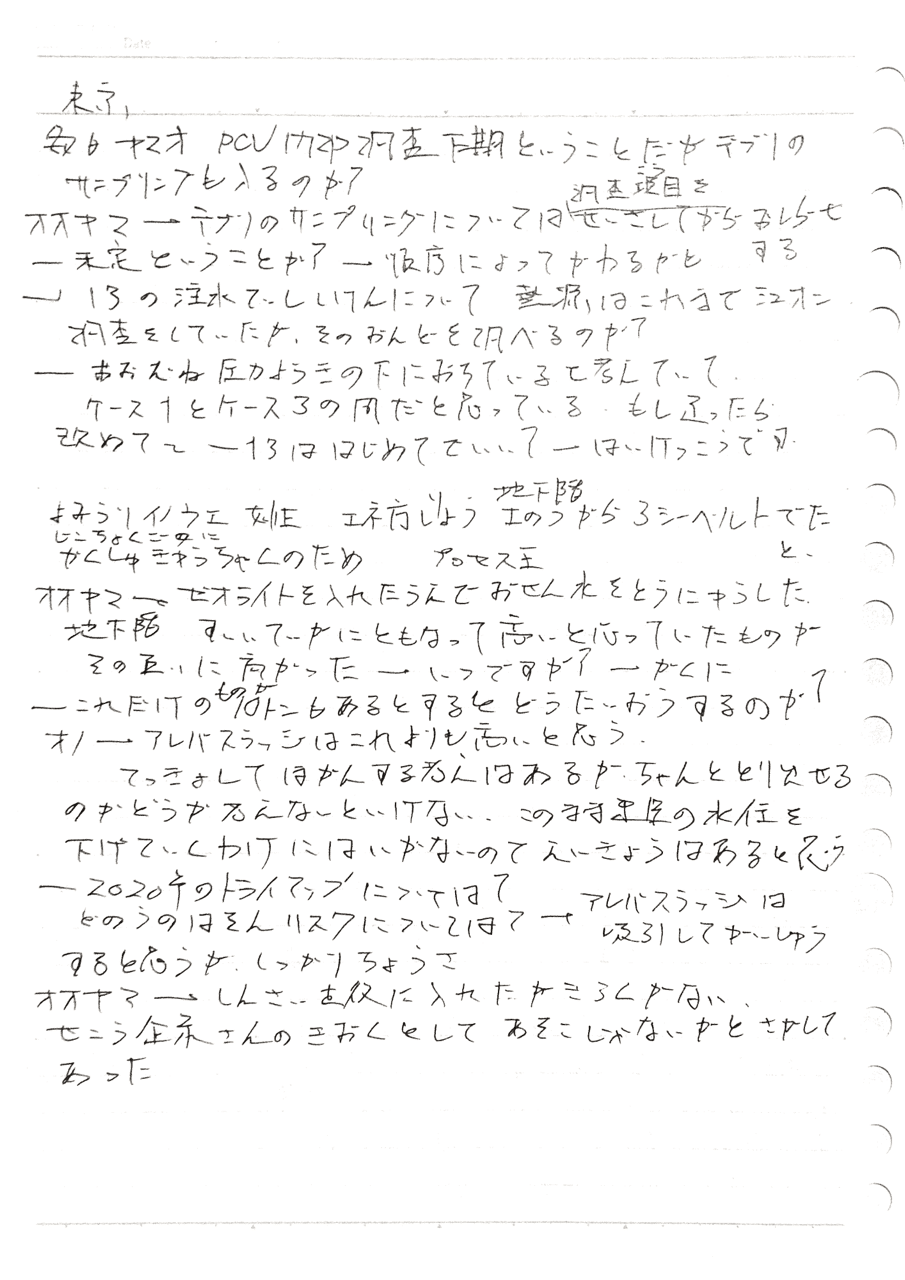 Date
東京,
PCV内部調査下期ということだがデブリの
サンプリングも入るのか?
調査項目を
オオヤマ → デブリのサンプリングについては せいさしてからおしらせ
する
― 未定ということか? → 順序によってかわるかと
→ 13の注水ていしじけんについて 熱源はこれまでミュオン
調査をしていたが、そのおんどを調べるのか?
― おおむね圧力ようきの下におちていると考えていて、
ケース1とケース3の間だと思っている。もし違ったら
改めてと ―13ははじめてでいい? ― はいけっこうです
地下階
よみうりイノウエ 土のうから3シーベルトでた
と、
じこちょくごに
かくしゅきゅうちゃくのため プロセス主
オオヤマ → ゼオライトを入れたうえでおせん水をとうにゅうした。
地下階 すいいていかにともなって高いと思っていたものが
その互いに高かった → いつですか? → かくに
ものが
― これだけの何トンもあるとするとどうたいおうするのか?
オノ → アレバスラッジはこれよりも高いと思う。
てっきょしてほかんする考えはあるが、ちゃんととり出せる
のかどうか考えないといけない、このまま建屋の水位を
下げていくわけにはいかないのでえいきょうはあると思う
― 2020年のドライアップについては?
どのうのはそんリスクについては? → アレバスラッジは
吸引してかいしゅう
すると思うが、しっかりちょうさ
オオヤマ → しんさい直後に入れたがきろくがない、
せこう企業さんのきおくとしてあそこじゃないかとさがして
あった